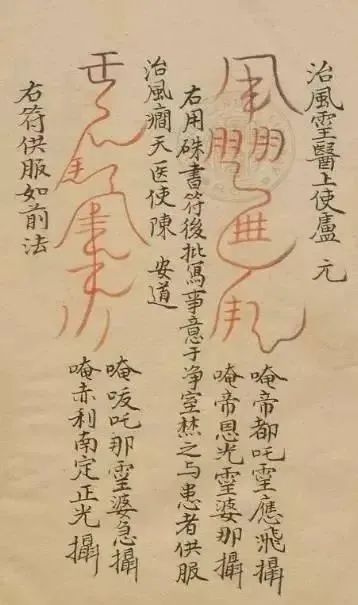 治風霊醫上使盧 元
唵帝都吒霊應飛攝
唵帝恩光霊婆那攝
右用硃書符後批寫事意于净室焚之与患者供服
治風癇天医使陳 安道
唵㕹吒那霊婆急攝
唵赤利南定正光攝
右符供服如前法